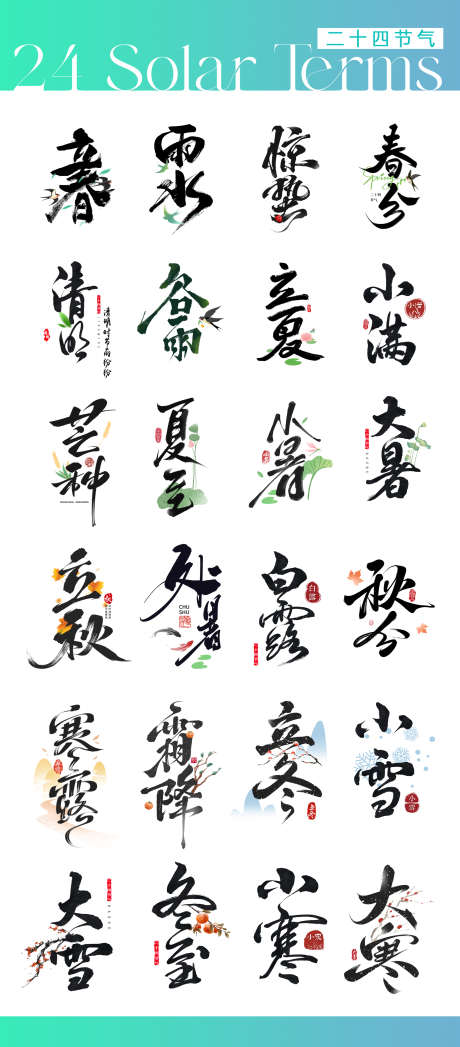 二十四节气
24 Solar Terms
立春
雨水
惊蛰
春分
清明
清明时节雨纷纷
谷雨
立夏
小满
小满
芒种
夏至
小暑
大暑
立秋
秋
处暑
CHU
SHU
白露
白露
秋分
寒露
霜降
立冬
小雪
小雪
大雪
冬至
小寒
小寒
大寒